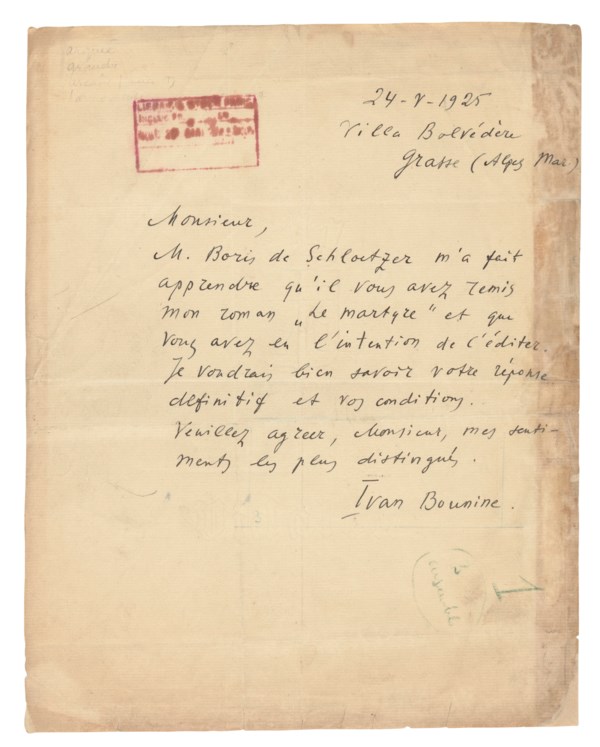 24-V-1925
Villa Belvédère
Grasse (Alpes Mar.)
Monsieur,
M. Boris de Schloetzer m'a fait
apprendre qu'il vous avez remis
mon roman „Le martyre" et que
vous avez eu l'intention de l'éditer.
Je voudrais bien savoir votre réponse
definitif et vos conditions.
Veuillez agreer, Monsieur, mes senti-
ments les plus distingués.
Ivan Bounine.
3
1